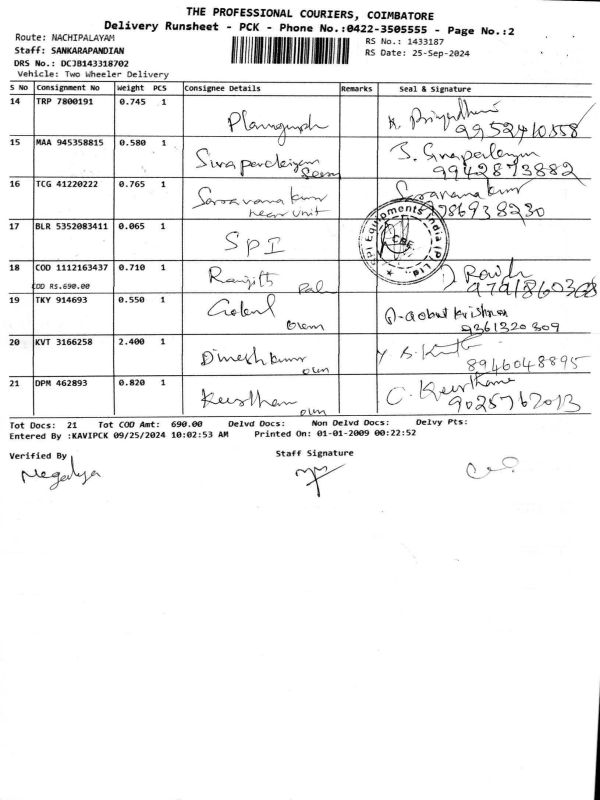 THE PROFESSIONAL COURIERS, COIMBATORE
Delivery Runsheet - PCK - Phone No.:0422-3505555 - Page No.:2
Route: NACHIPALAYAM
RS No.: 1433187
Staff: SANKARAPANDIAN
RS Date: 25-Sep-2024
DRS No.: DCJB143318702
Vehicle: Two Wheeler Delivery
S No Consignment No Weight PCS Consignee Details Remarks Seal & Signature
14 TRP 7800191 0.745 1
9952410558
15 MAA 945358815 0.580 1
9942873882
16 TCG 41220222 0.765 1 Saravanakumar Saravanakumar
near unit
17 BLR 5352083411 0.065 1 SPI
SPI Equipments India (P) Ltd.
CBE
18 COD 1112163437 0.710 1 Ranjith
COD RS.690.00
19 TKY 914693 0.550 1 Gokul
own
9361320309
20 KVT 3166258 2.400 1 Dineshkumar
own 8946048895
21 DPM 462893 0.820 1
own 9025762013
Tot Docs: 21 Tot COD Amt: 690.00 Delvd Docs: Non Delvd Docs: Delvy Pts:
Entered By :KAVIPCK 09/25/2024 10:02:53 AM Printed On: 01-01-2009 00:22:52
Verified By Staff Signature